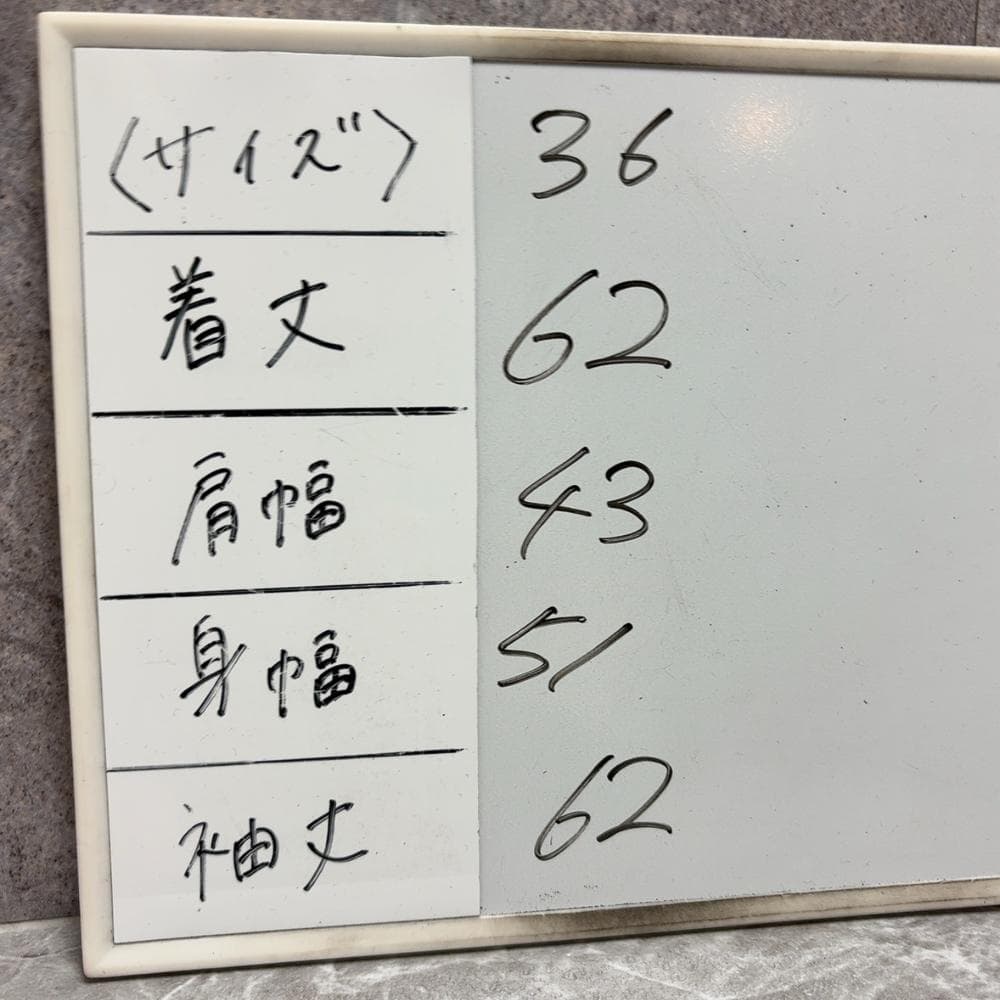 〈サイズ〉 36
着丈 62
肩幅 43
身幅 51
袖丈 62